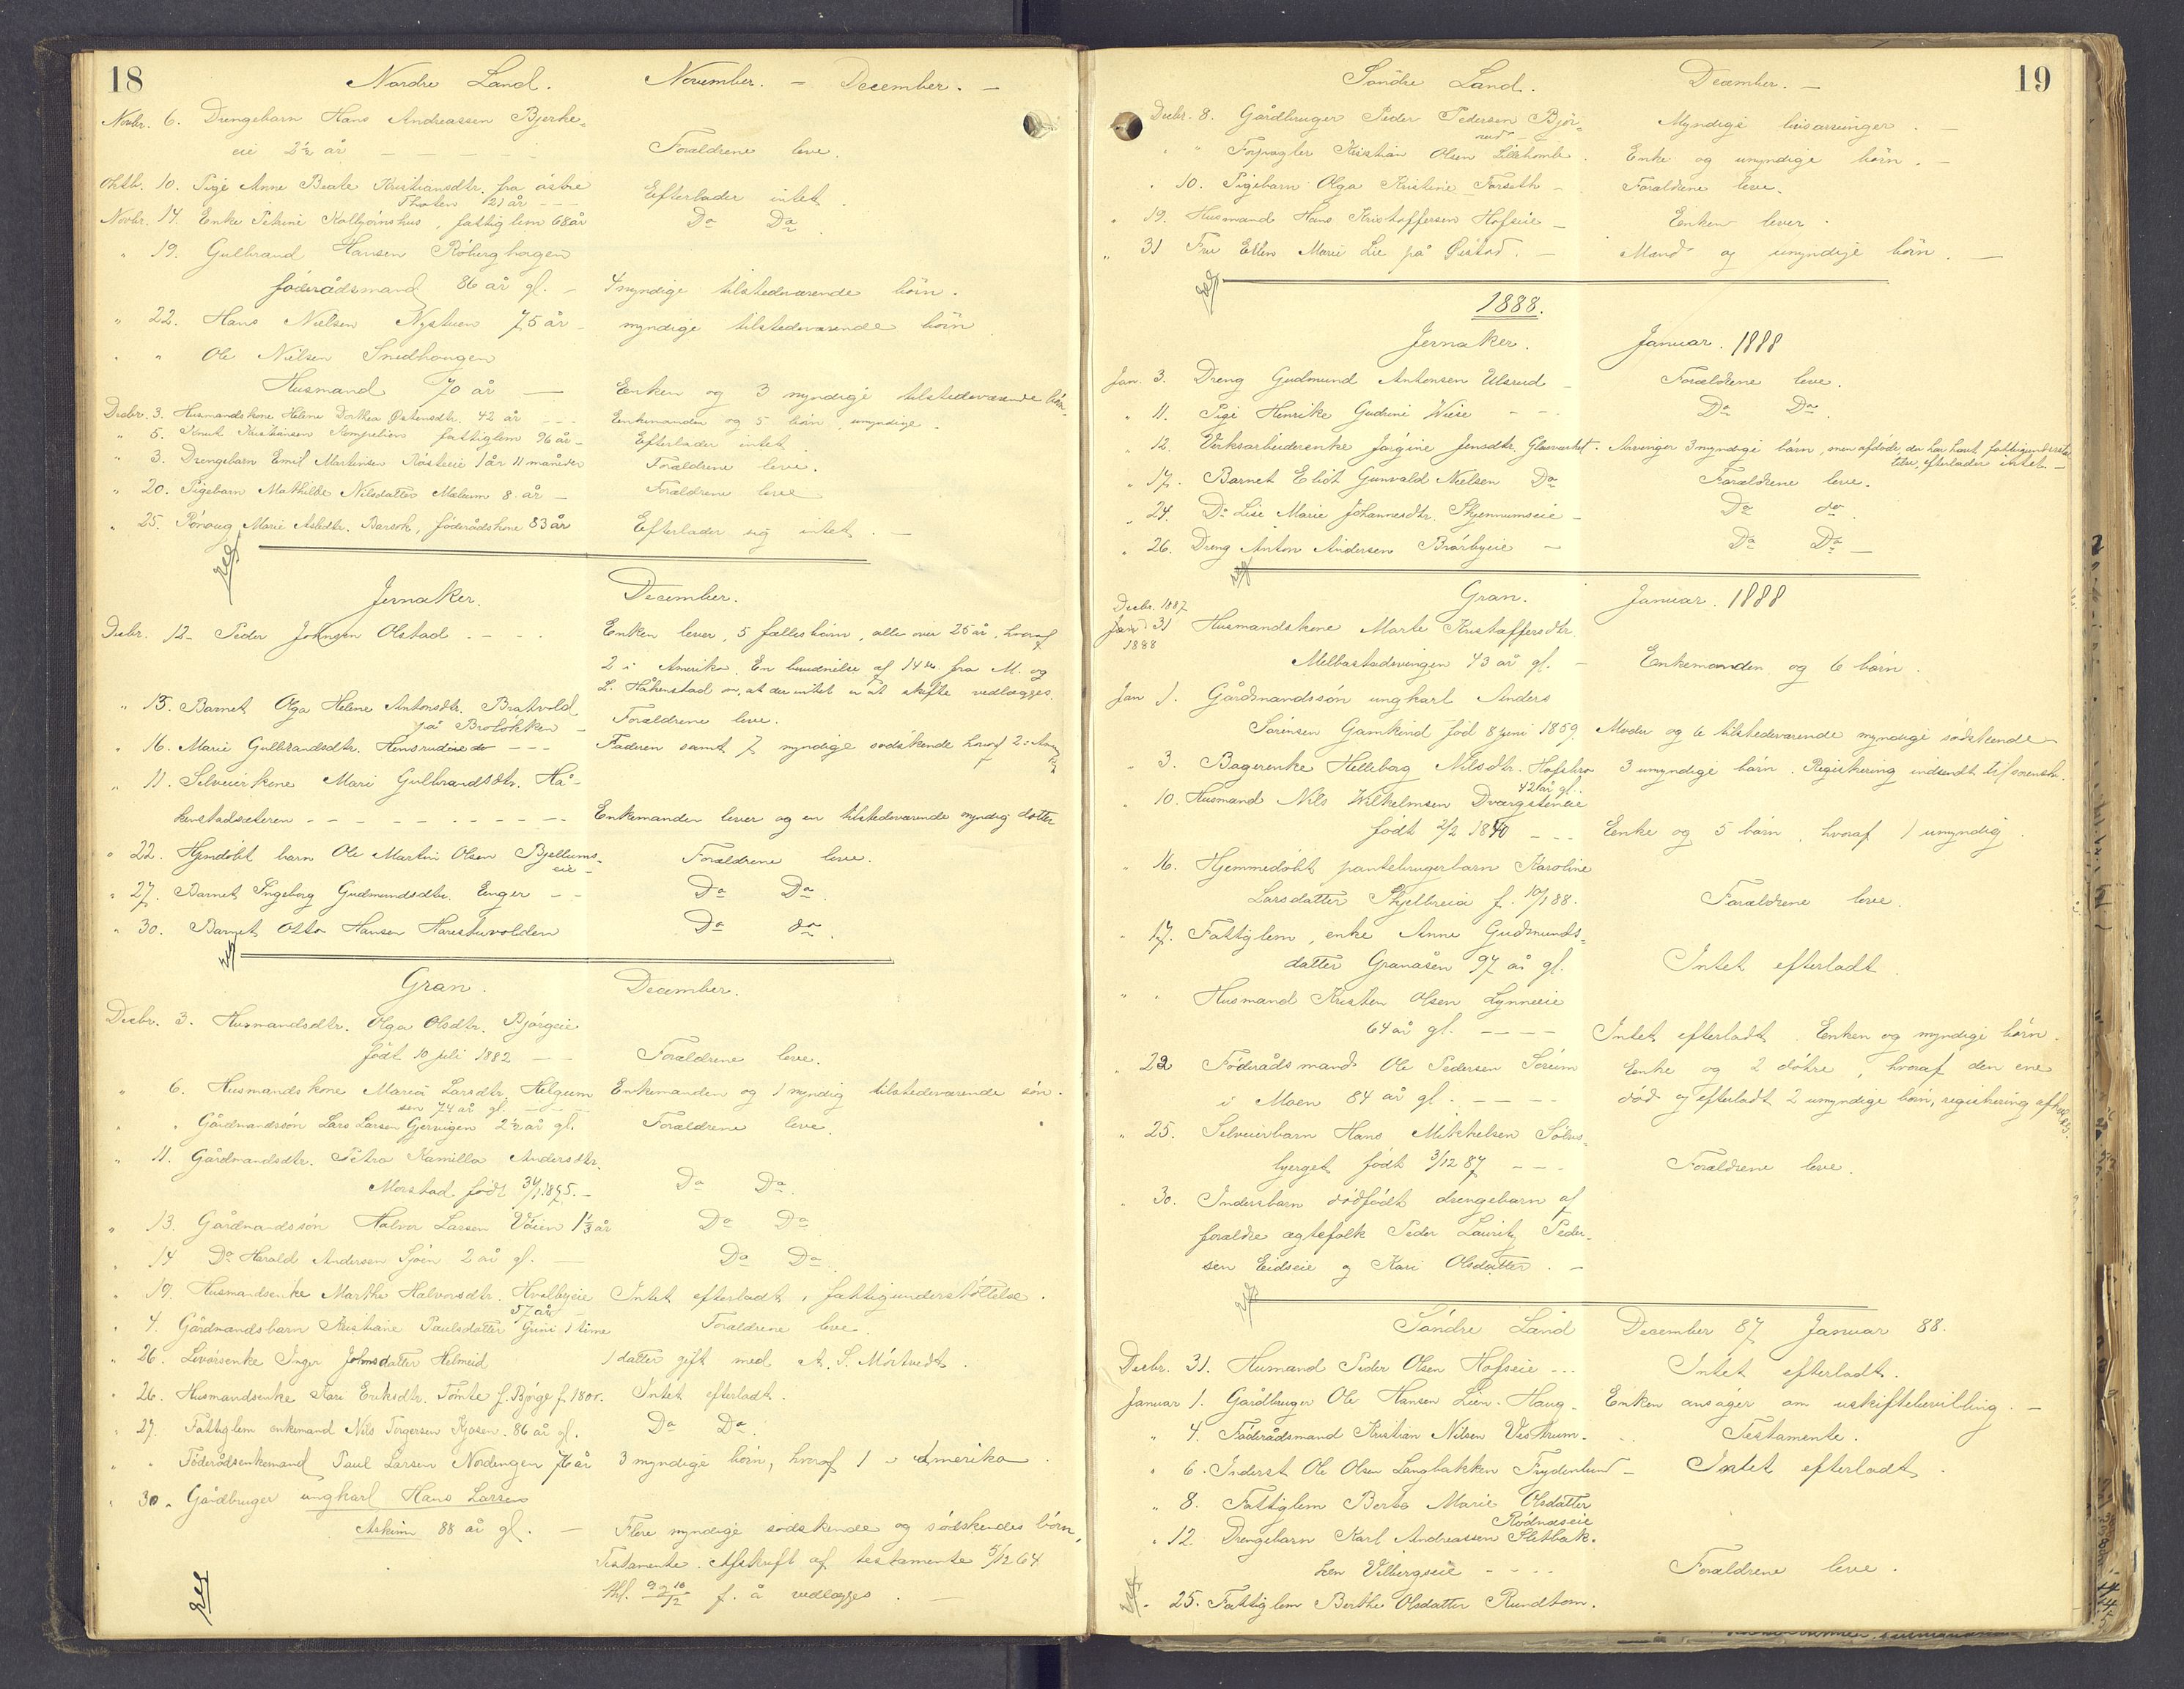 18
Nordre Land. November. - December. -
Novbr. 6. Drengebarn Hans Andreassen Bjerke-
eie 2½ år - - - - - Forældrene leve.
Oktb. 10. Pige Anne Beate Kristiansdtr. fra östre
Thoten 21 år - - - Efterlader intet.
Novbr. 14. Enke Petrine Kolbjörnshus, fattiglem 68 år Do Do.
" 19. Gulbrand Hansen Röberghagen
föderådsmand 86 år gl. - 4 myndige tilstedeværende börn.
" 22. Hans Nielsen Nystuen 75 år - myndige tilstedeværende börn
" " Ole Nielsen Snedhaugen
Husmand 70 år — Enken og 3 myndige tilstedeværende börn.
Decbr. 3. Husmandskone Helene Dorthea Östensdtr. 42 år - - - Enkemanden og 5 börn, umyndige.
" 5. Knut Kristiansen fattiglem 96 år - Efterlader intet.
" 3. Drengebarn Emil Martinsen Rösteeie 1 år 11 måneder Forældrene leve.
" 20. Pigebarn Mathilde Nilsdatter Mælum 8 år - Forældrene leve
" 25. Marie Asledtr. föderådskone 83 år Efterlader sig intet. —
Jernaker. December.
Decbr. 12. Peder Johnsen Olstad - - - Enken lever, 5 fællesbörn, alle over 25 år, hvoraf
2 i Amerika. En af 14 fra M. og
L. Håkenstad om, at der intet er at skifte vedlægges.
" 15. Barnet Olga Helene Antonsdtr. Bratvold
på Brolökken - Forældrene leve.
" 16. Marie Gulbrandsdtr. - - - Faderen samt 7 myndige södskende hvoraf 2 i
" 11. Selveierkone Mari Gulbrandsdtr. Hå-
kenstadsæteren - - - - - - - - - Enkemanden lever og en tilstedeværende myndig datter
" 22. Hjemdöbt barn Ole Martin Olsen Bjellums-
eie - Forældrene leve.
" 27. Barnet Ingeborg Gudmundsdtr. Enger - - Do Do.
" 30. Barnet Otto Hansen Harestuvolden Do do.
Gran. December.
Decbr. 3. Husmandsdtr. Olga Olsdtr. Björgeie
född 10 juli 1882 - - Forældrene leve.
" 6. Husmandskone Maria Larsdtr. Helgum Enkemanden og 1 myndig tilstedeværende sön.
sen 74 år gl. - -
" " Gårdmandssön Lars Larsen Gjervigen 2½ år gl. Forældrene leve.
" 11. Gårdmandsdtr. Petra Kamilla Andersdtr.
Morstad född 1875. - Do Do.
" 13. Gårdmandssön Halvor Larsen Vöien 1⅓ år Do Do
" 14 Do Harald Andersen Sjöen 2 år gl. — Do Do
" 19. Husmandsenke Marthe Halvorsdtr. Hvalbyeie Intet efterladt, fattigunderstöttelse.
57 år
" 4. Gårdmandsbarn Kristiane Paulsdatter Grini 1 time Forældrene leve.
" 26. Inger Johnsdatter Helmeid 1 datter gift med A. S. Mörtvedt.
" 26. Husmandsenke Kari Eriksdtr. Tömte f. Björge f. 1805. Intet efterladt.
" 27. Fattiglem enkemand Nils Torgersen Kjosen. 86 år gl. Do Do.
" " Föderådsenkemand Paul Larsen Nordengen 76 år 3 myndige börn, hvoraf 1 i Amerika.
" 30. Gårdbruger ungkarl Hans Larsen
Askim 88 år gl. - Flere myndige södskende og södskendes börn,
Testamente. Afskrift af testamente 5/12 64
f. å vedlægges. —
19
Söndre Land. December. -
Decbr. 8. Gårdbruger Peder Pedersen Björ-
rud - Myndige livsarvinger. -
" " Forpagter Kristian Olsen Lillehomle. Enke og umyndige börn. -
" 10. Pigebarn Olga Kristine Forseth - Forældrene leve.
" 19. Husmand Hans Kristoffersen Hofseie - Enken lever.
" 31 Fru Ellen Marie Lie på Öistad. - Mand og umyndige börn. —
1888.
Jernaker. Januar. 1888
Jan. 3. Dreng Gudmund Antonsen Ulsrud - Forældrene leve.
" 11. Pige Henrike Gudrine Wiese - - Do Do.
" 12. Verksarbeiderenke Jörgine Jensdtr. Glasværket. Arvinger 3 myndige börn, men afdöde, der har havt fattigunderstöt-
telse, efterlader intet. -
" 17. Barnet Elidt Gunvald Nielsen Do Forældrene leve.
" 24. Do Lise Marie Johannesdtr. Skjennumseie - Do do.
" 26. Dreng Anton Andersen Bråbyeie - Do Do -
Gran. Januar. 1888
Decbr. 1887
Jan. 31 Husmandskone Marte Kristoffersdtr.
1888
Melbostadsvingen 43 år gl. - Enkemanden og 6 börn.
Jan 1. Gårdmandssön ungkarl Anders
Sörensen Gamkind föd 8 juni 1859. Moder og 6 tilstedeværende myndige södskende
" 3. Bagerenke Helleborg Nilsdtr. Hofsbro 3 umyndige börn. Registrering indsendt til sorenskr.
42 år gl.
" 10. Husmand Nils Wilhelmsen Dvergsteneie
født 2/2 1840 - - - Enke og 5 börn, hvoraf 1 umyndig.
" 16. Hjemmedöbt pantebrugerbarn Karoline
Larsdatter Skjelbreia f. 10/1 88. Forældrene leve.
" 17. Fattiglem, enke Anne Gudmunds-
datter Granaåsen 97 år gl. Intet efterladt
" " Husmand Kristen Olsen Lynneeie
64 år gl. - - - - Intet efterladt. Enken og myndige börn.
" 22 Föderådsmand Ole Pedersen Sörum Enke og 2 dötre, hvoraf den ene
i Moen 84 år gl. - - - - död og efterladt 2 umyndige börn, registrering afholdes.
" 25. Selveierbarn Hans Mikkelsen Sölvs-
bjerget födt 3/12 87 - - - Forældrene leve.
" 30. Inderstbarn dödfödt drengebarn af
forældre ægtefolk Peder Lauritz Peder-
sen Eidseie og Kari Olsdatter. -
Söndre Land December 87 Januar 88.
Decbr. 31. Husmand Peder Olsen Hofseie - - - Intet efterladt.
Januar 1. Gårdbruger Ole Hansen Lien - Haug - Enken ansöger om uskiftebevilling. -
" 4. Föderådsmand Kristian Nilsen Vestrum - Testamente.
" 6. Inderst Ole Olsen Langbakken Frydenlund - Intet efterladt.
" 8. Fattiglem Berte Marie Olsdatter
Rödnæseie
" 12. Drengebarn Karl Andreassen Sletbak-
ken Velbergseie - - - - Forældrene leve.
" 25. Fattiglem Berthe Olsdatter Rundtom.